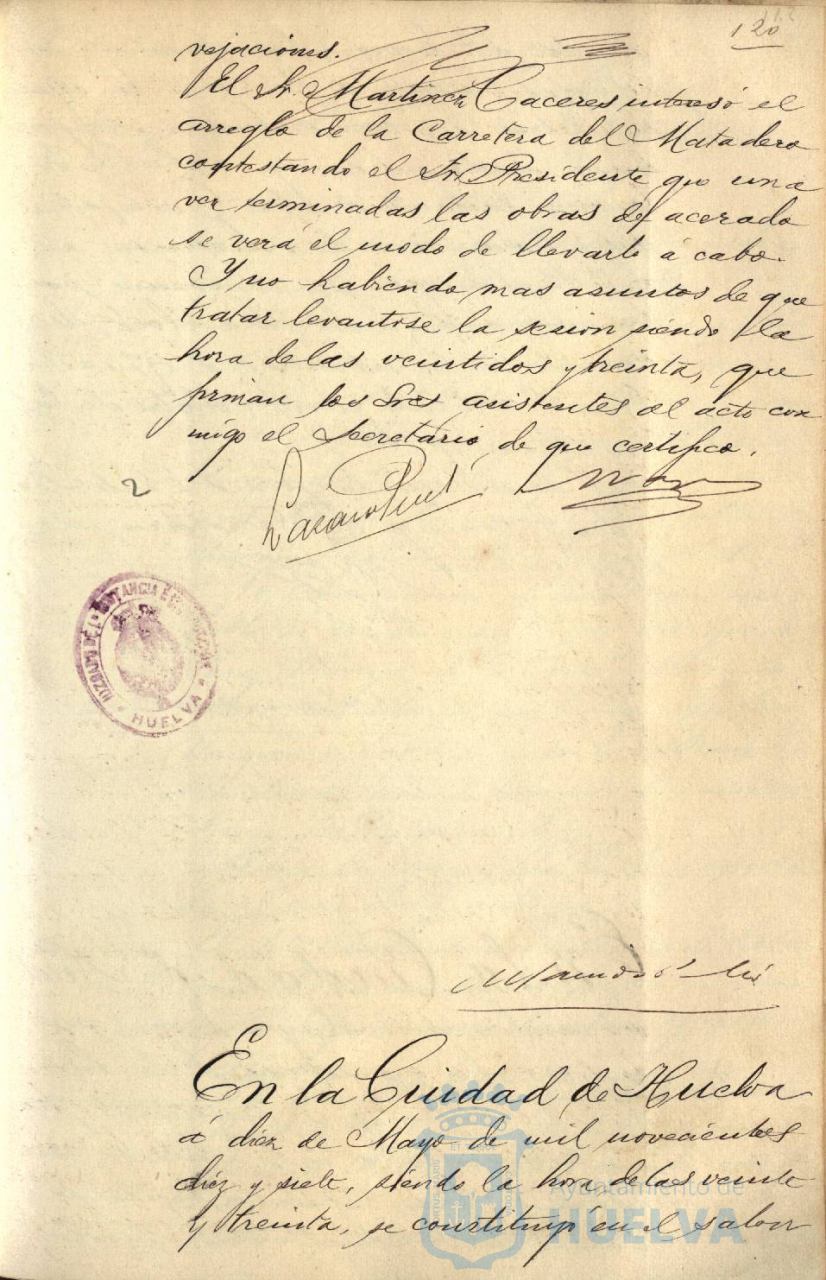 120
vejaciones.
El Sr. Martinez Caceres interesó el
arreglo de la Carretera del Matadero
contestando el Sr. Presidente que una
vez terminadas las obras de acerado
se verá el modo de llevarlo á cabo.
Y no habiendo mas asuntos de que
tratar levantose la sesion siendo la
hora de las veintidos y treinta, que
firman los Sres asistentes al acto con
migo el Secretário, de que certifico.
2
HUELVA
En la Ciudad de Huelva
á diez de Mayo de mil novecientos
diez y siete, siendo la hora de las veinte
y treinta, se constituyó en el salon
Ayuntamiento de
HUELVA